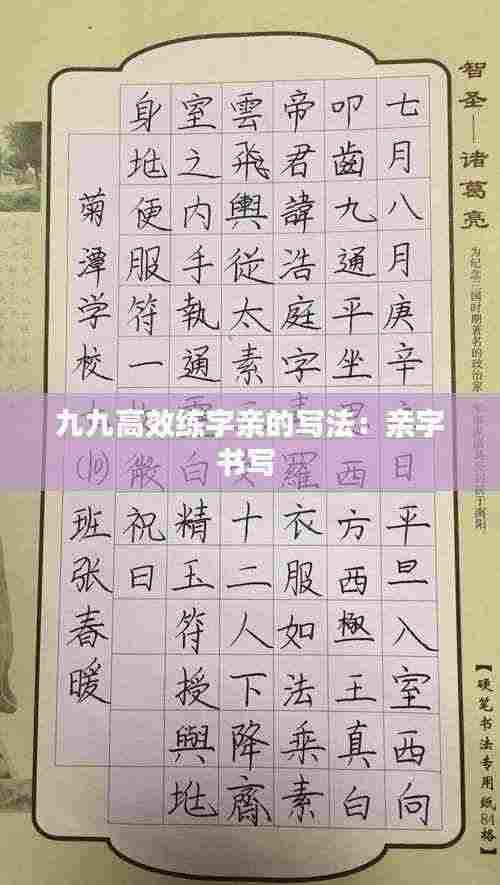 智圣—诸葛亮
为纪念三国时期著名的政治家
【硬笔书法专用纸84格】
七月八月庚辛日平旦入室西向
叩齒九通平坐思西方西極王真白
帝君諱浩庭字羅衣服如法乘素
雲飛輿從太素十二人下降齋
室之内手執通白精玉符授與
身便服符一散祝曰
菊潭学校(10)班张春暖
九九高效练字亲的写法：亲字
书写